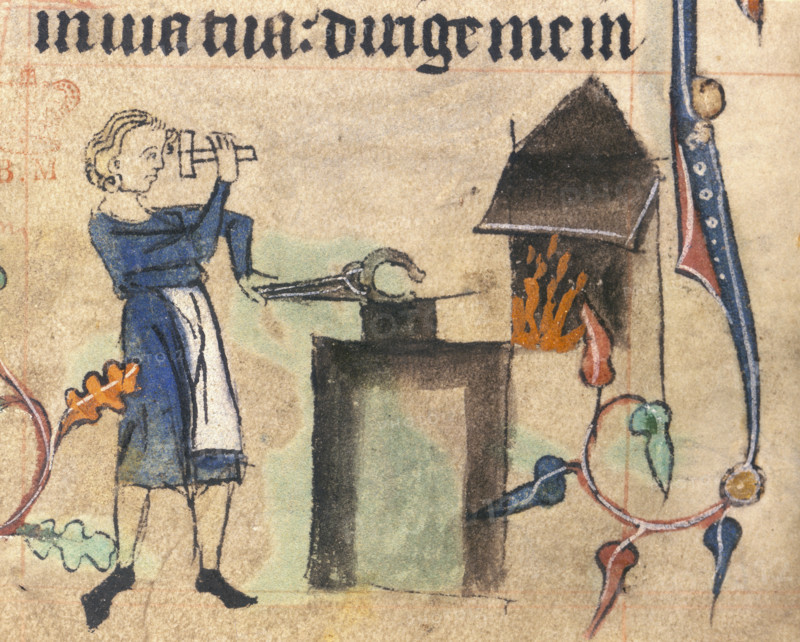 in uia tua: dirige me in
B. M